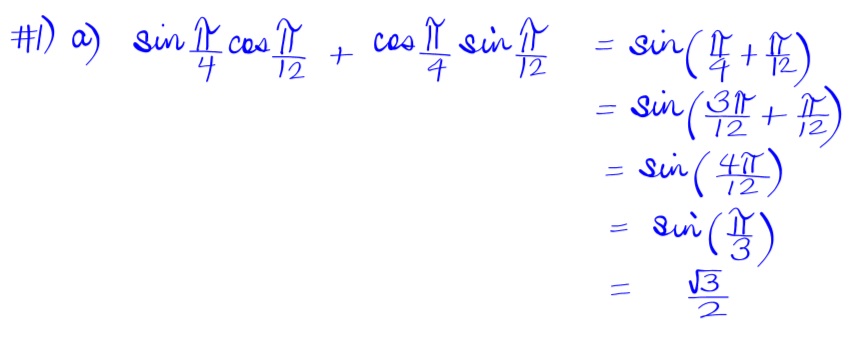 #1) a) sin π/4 cos π/12 + cos π/4 sin π/12 = sin(π/4 + π/12)
= sin(3π/12 + π/12)
= sin(4π/12)
= sin(π/3)
= √3/2